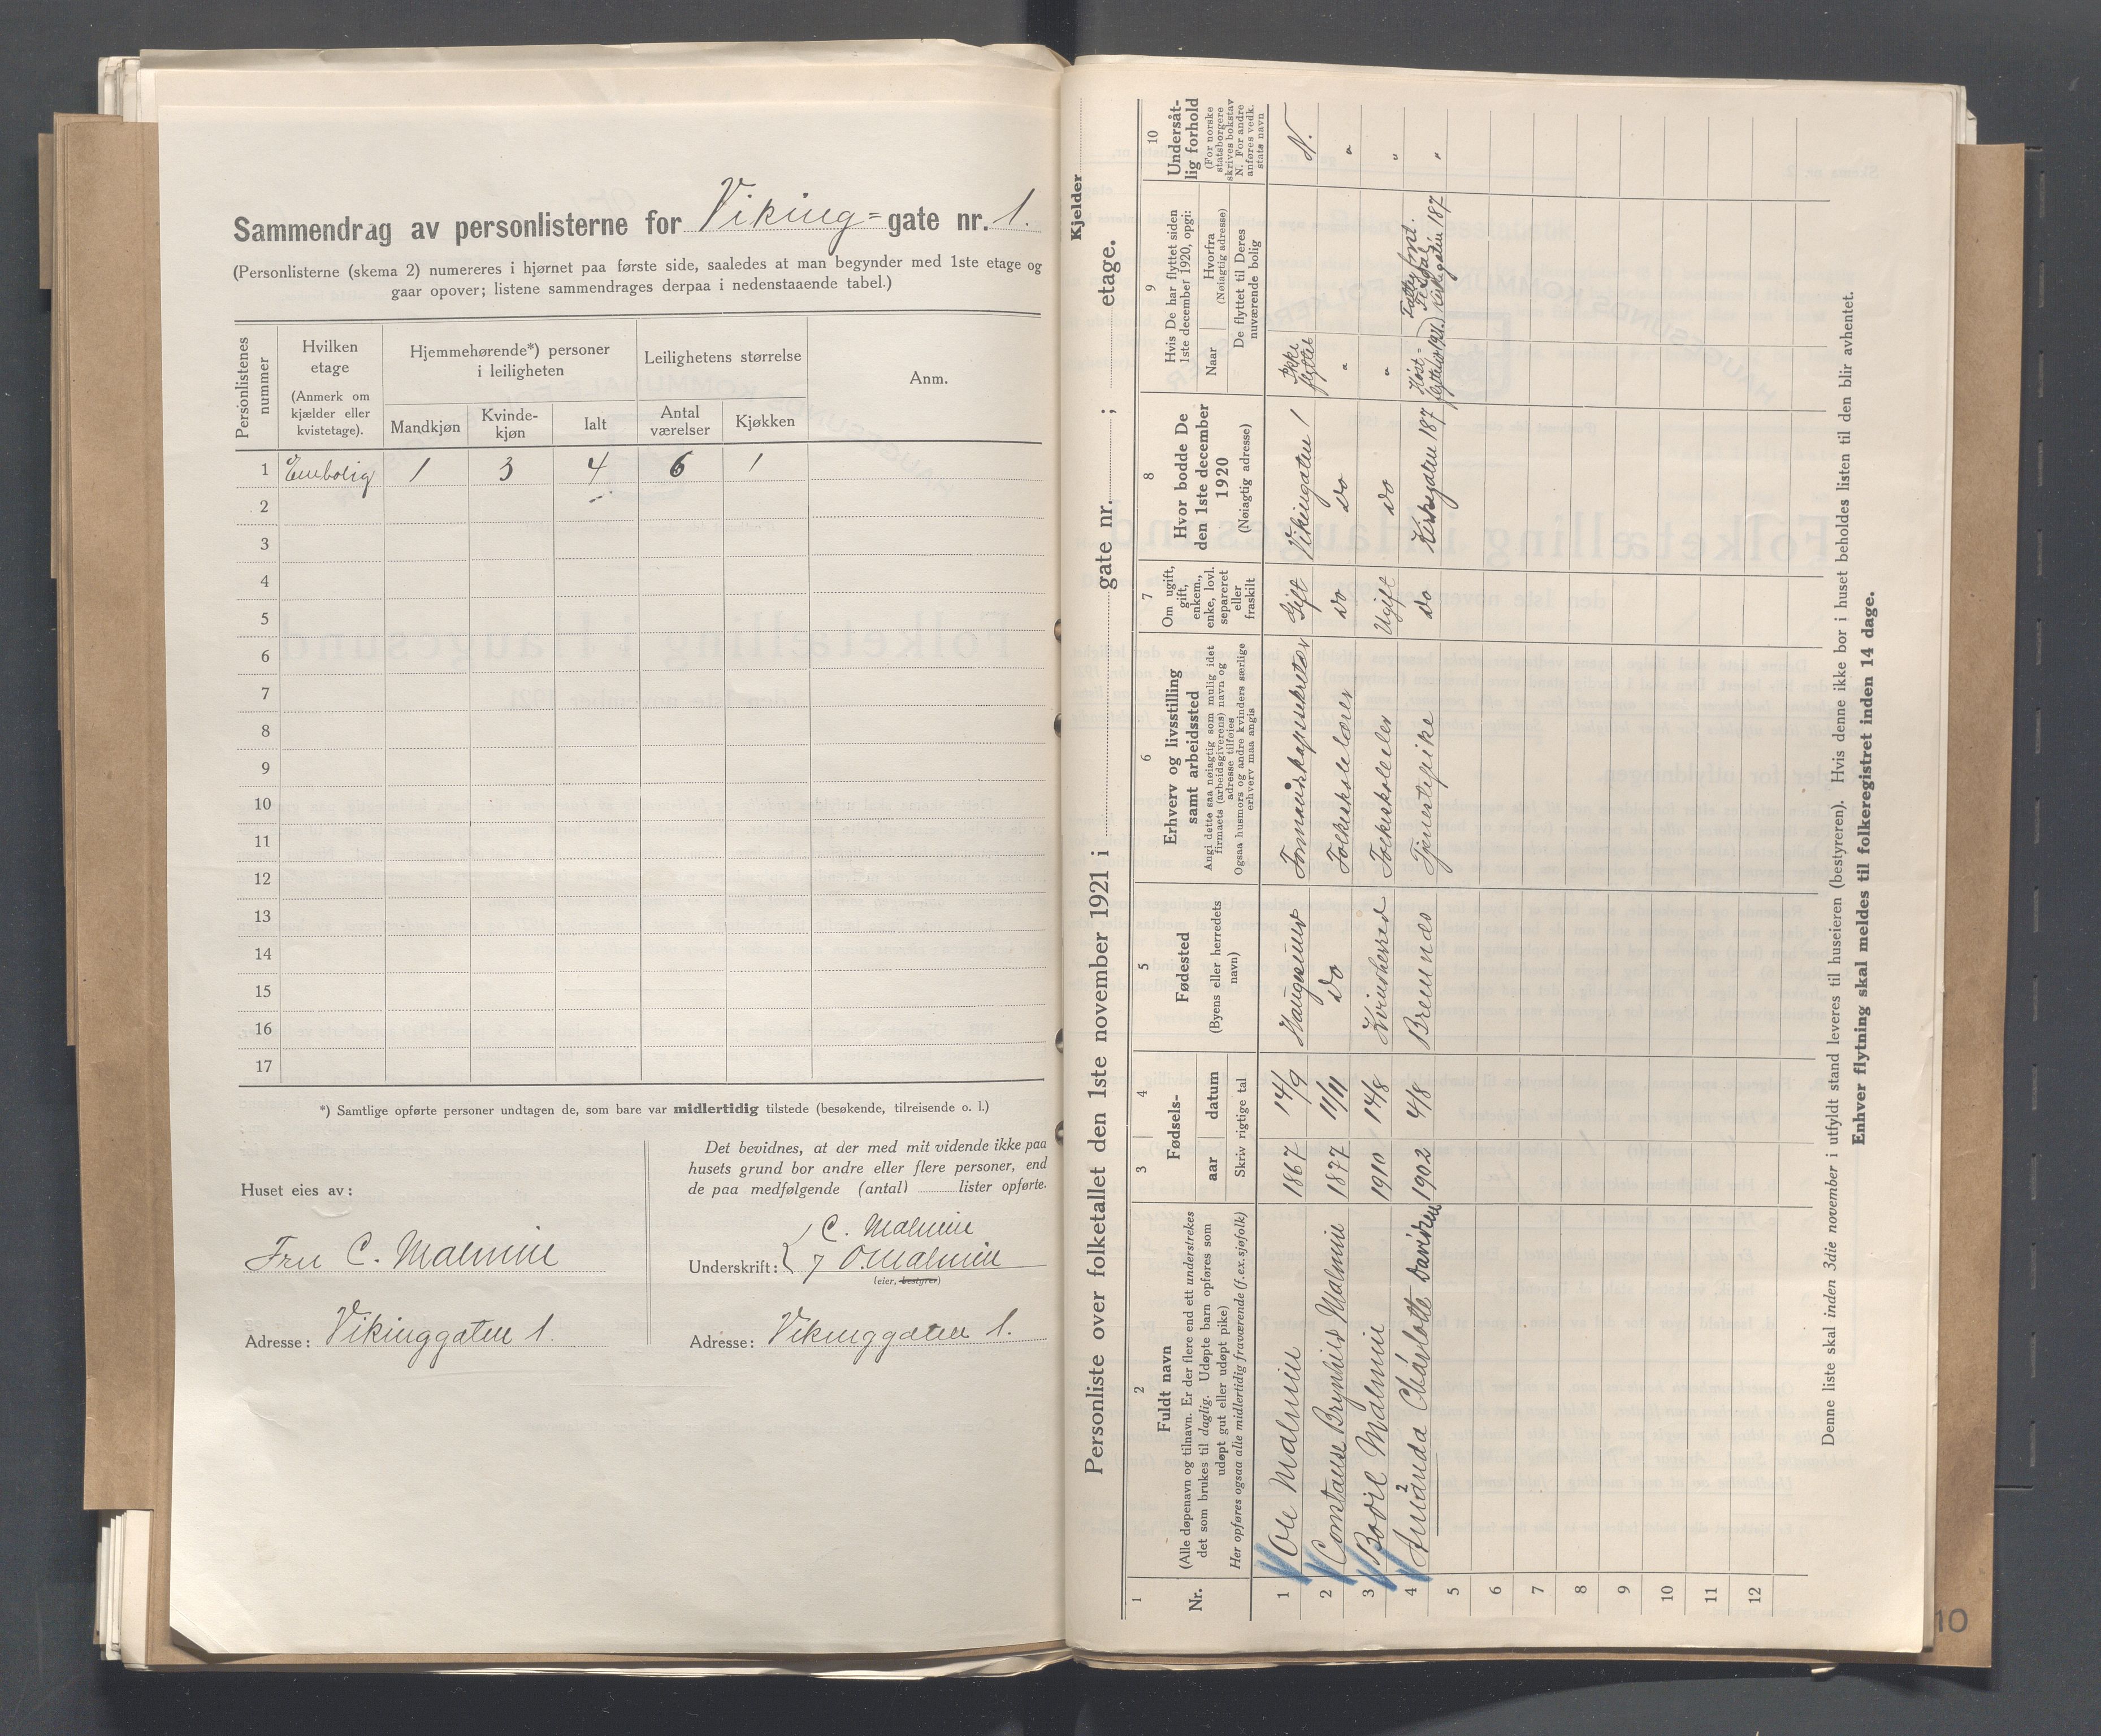 Sammendrag av personlisterne for Viking= gate nr. 1.
(Personlisterne (skema 2) numereres i hjørnet paa første side, saaledes at man begynder med 1ste etage og
gaar opover; listene sammendrages derpaa i nedenstaaende tabel.)
Personlistenes nummer
Hvilken etage
(Anmerk om kjælder eller kvistetage).
Hjemmehørende*) personer i leiligheten
Mandkjøn
Kvinde-kjøn
Ialt
Leilighetens størrelse
Antal værelser
Kjøkken
Anm.
1 Enebolig 1 3 4 6 1
2
3
4
5
6
7
8
9
10
11
12
13
14
15
16
17
*) Samtlige opførte personer undtagen de, som bare var midlertidig tilstede (besøkende, tilreisende o. l.)
Huset eies av:
Fru C. Malmin
Adresse: Vikinggaten 1.
Det bevidnes, at der med mit vidende ikke paa
husets grund bor andre eller flere personer, end
de paa medfølgende (antal) lister opførte.
C. Malmin
Underskrift: / O. Malmin
(eier, bestyrer)
Adresse: Vikinggaten 1.
Kjelder
Personliste over folketallet den 1ste november 1921 i gate nr. ; etage.
1
Nr.
2
Fuldt navn
(Alle døpenavn og tilnavn. Er der flere end ett understrekes
det som brukes til daglig. Udøpte barn opføres som
udøpt gut eller udøpt pike)
Her opføres ogsaa alle midlertidig fraværende (f.ex.sjøfolk)
3 4
Fødsels-
aar datum
Skriv rigtige tal
5
Fødested
(Byens eller herredets
navn)
6
Erhverv og livsstilling
samt arbeidssted
Angi dette saa nøiagtig som mulig idet
firmaets (arbeidsgiverens) navn og
adresse tilføies
Ogsaa husmors og andre kvinders særlige
erhverv maa angis
7
Om ugift,
gift,
enkem.,
enke, lovl.
separeret
eller
fraskilt
8
Hvor bodde De
den 1ste december
1920
(Nøiagtig adresse)
9
Hvis De har flyttet siden
1ste december 1920, opgi:
Naar
Hvorfra
(Nøiagtig adresse)
De flyttet til Deres
nuværende bolig
10
Undersåt-
lig forhold
(For norske
statsborgere
skrives bokstav
N. For andre
anføres vedk.
stats navn
1 Ole Malmin 1867 14/9 Haugesund Formandskapssekretær Gift Vikingaten 1 Ikke flyttet N.
2 Constanse Brynhild Malmin 1877 11/11 do Folkeskolelærer do do " "
3 Bodil Malmin 1910 14/8 Kvindherred Folkeskoleelev Ugift do " "
4 Amanda Charlotte Davidsen 1902 4/8 Bremnes Tjenestepike do Kirkegaten 187 Høst- Kirkegaten 187 "
5
6
7
8
9
10
11
12
Denne liste skal inden 3die november i utfyldt stand leveres til huseieren (bestyreren). Hvis denne ikke bor i huset beholdes listen til den blir avhentet.
Enhver flytning skal meldes til folkeregistret inden 14 dage.
10